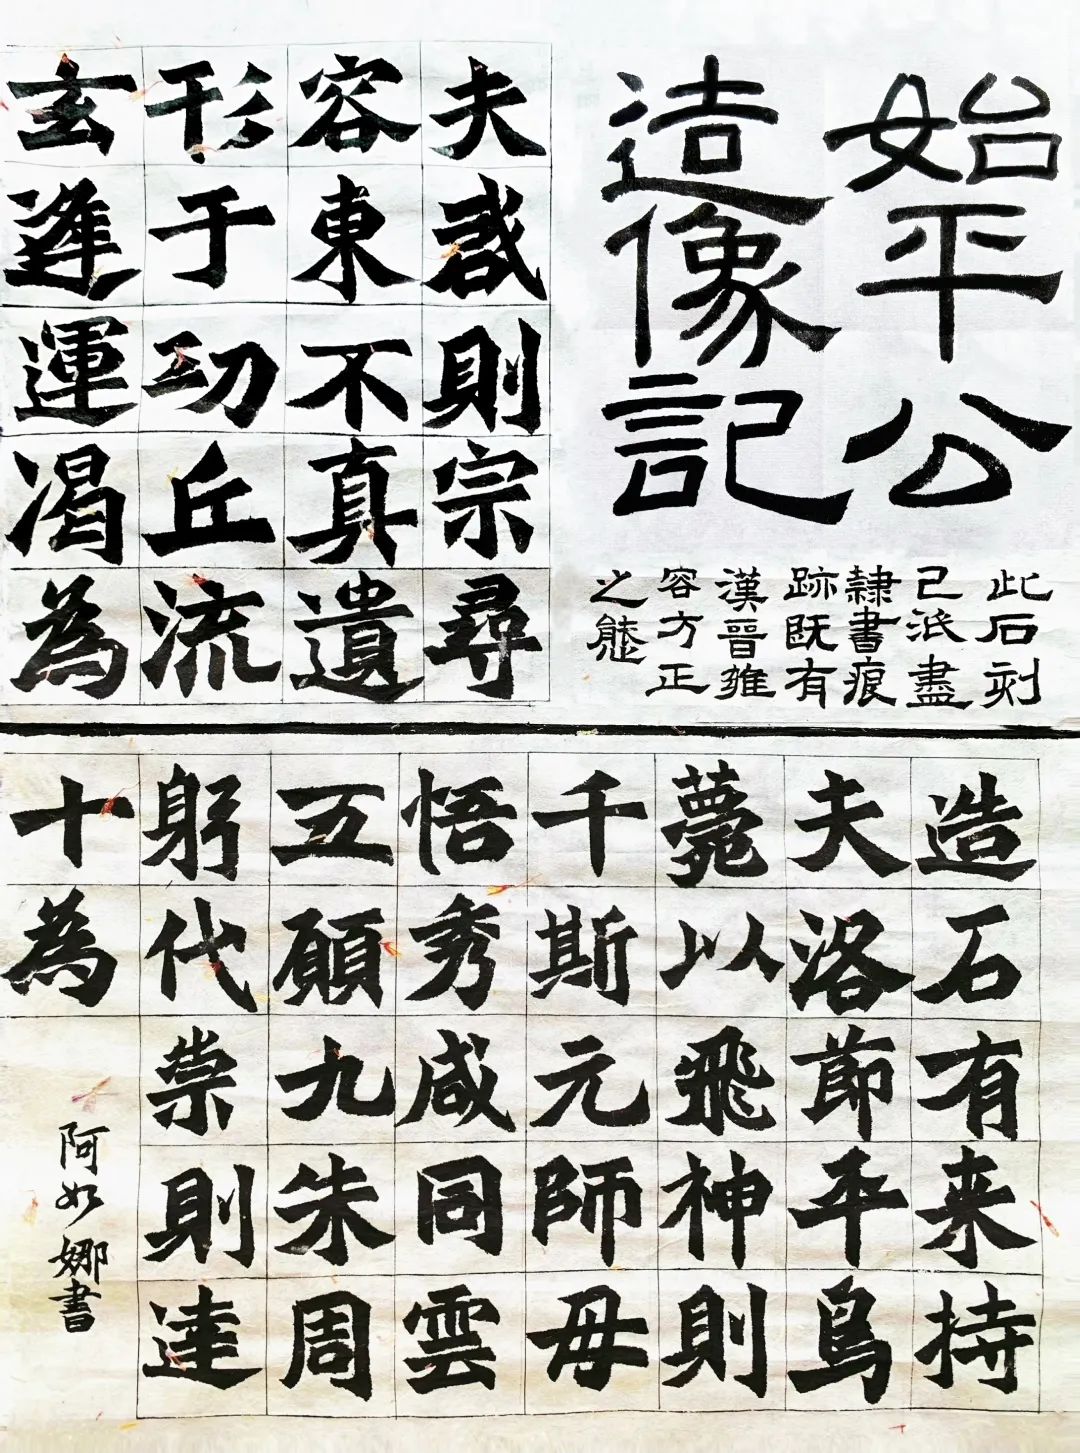 始平公
造像記
此石刻
己泯盡
隸書痕
跡既有
漢晉雍
容方正
之態
夫惑則宗尋
容東不真遺
形于功丘流
玄逢運渴為
造石有来持
夫洛節平鳥
薨以飛神則
千斯元師母
悟秀咸同雲
五願九朱周
躬代崇則達
十為
阿如娜書